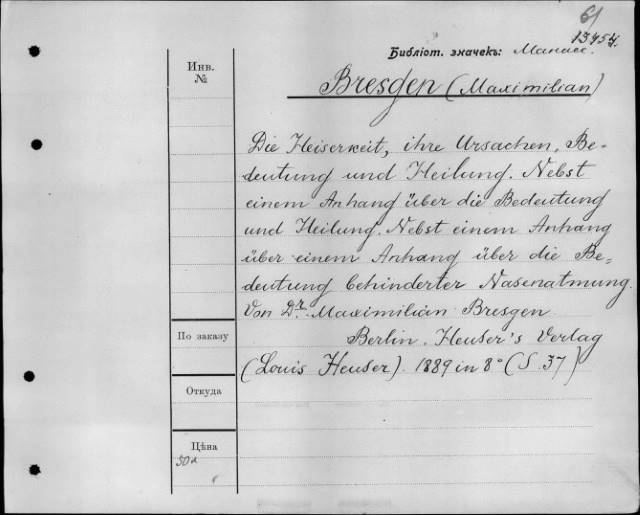 61
13454.
Библіот. значекъ: Манасс.
Инв.
№
Bresgen (Maximilian)
Die Heiserkeit, ihre Ursachen, Be-
deutung und Heilung. Nebst
einem Anhang über die Bedeutung
und Heilung. Nebst einem Anhang
über einem Anhang über die Be=
deutung behinderter Nasenatmung.
Von Dr. Maximilian Bresgen.
Berlin. Heuser's Verlag
(Louis Heuser). 1889 in 8° (S. 37)
По заказу
Откуда
Цѣна
50